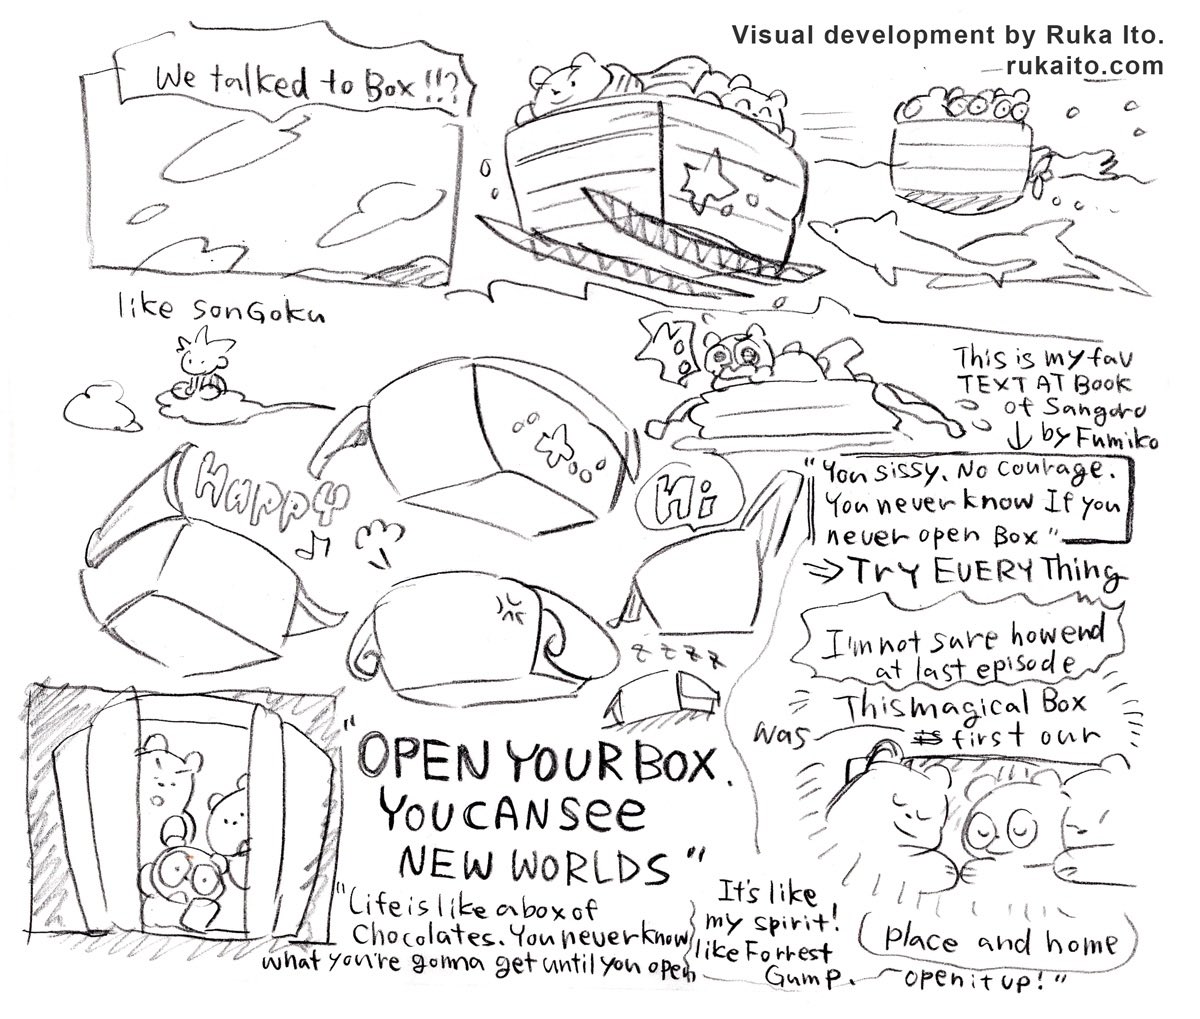 Visual development by Ruka Ito.
rukaito.com
We talked to Box!!?
like sonGoku
This is my fav
TEXT AT Book
of Sangoro
↓ by Fumiko
Happy
Hi
"You sissy. No courage.
You never know If you
never open Box"
⇒ TrY EVERYThing
I'm not sure how end
at last episode
This magical Box
was first our
zzzz
"OPEN YOUR BOX.
YOU CAN See
NEW WORLDS"
"Life is like a box of
Chocolates. You never know
what you're gonna get until you open
It's like
my spirit!
like Forrest
Gump.
place and home
open it up!"